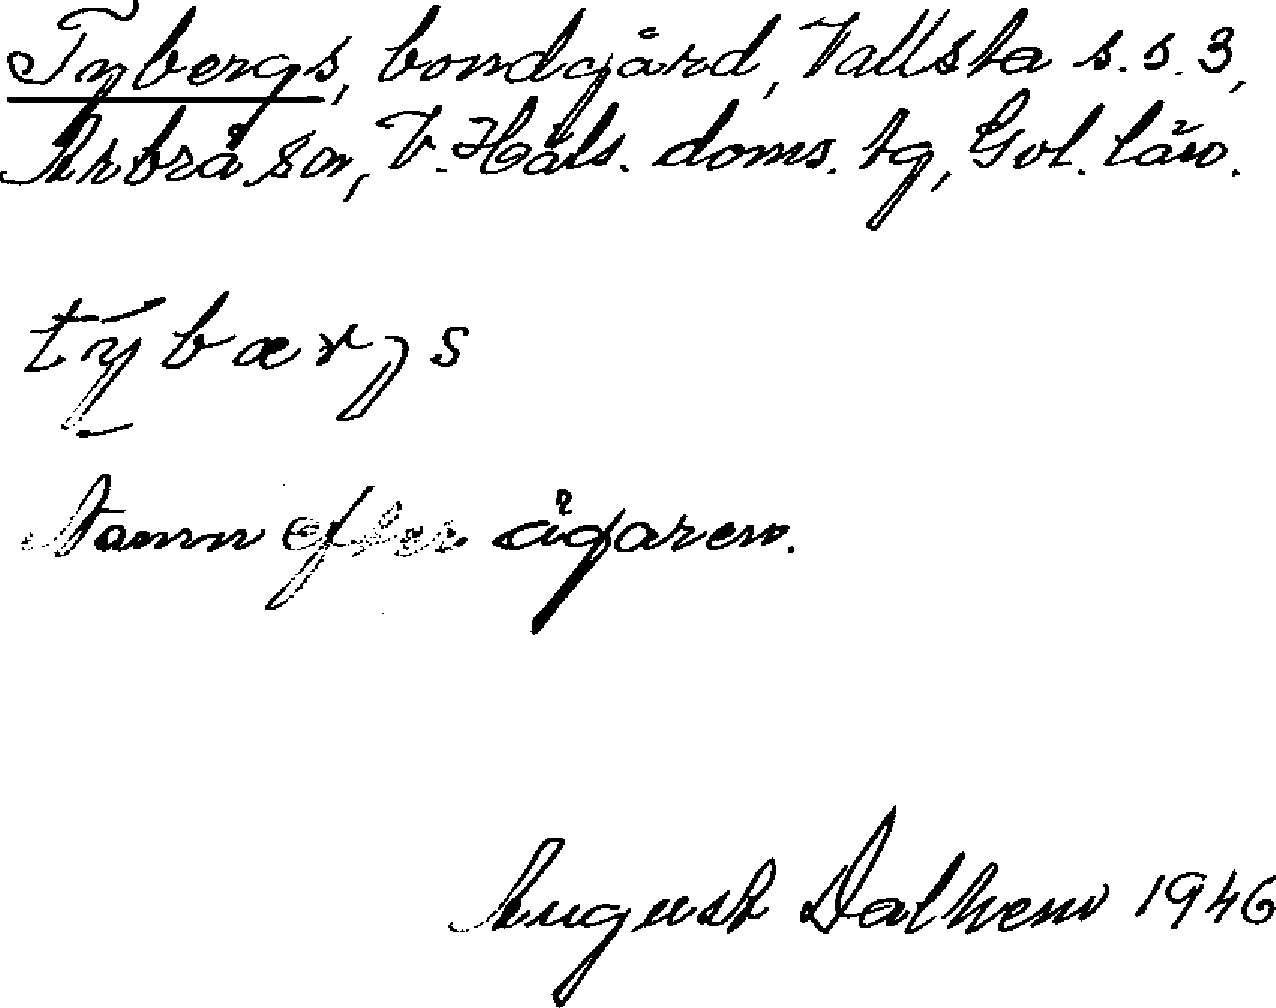 Tybergs, bondgård, Vallsta s.s. 3,
Arbrå sn, V. Häls. doms. tg, Gvl. län.
týbærȝs
Namn efter ägaren.
August Dalhem 1946